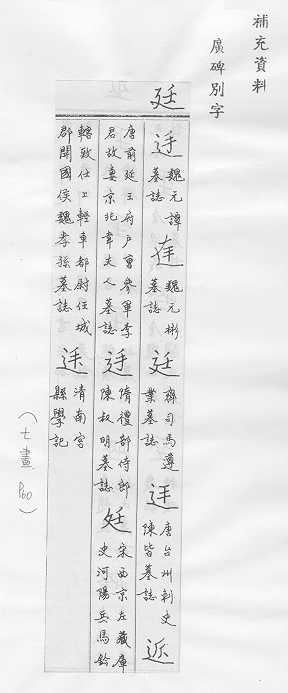 補充資料
廣碑別字
廷
𨑳 魏元譚墓誌
莛 魏元彬墓誌
廷 齊司馬遵業墓誌
迋 唐台州刺史陳皆墓誌
近
唐前延王府戶曹參軍李君故妻京兆韋夫人墓誌
隋禮部侍郎陳叔明墓誌
廷 宋西京左藏庫史河陽兵馬鈐
轄致仕上輕車都尉任城郡開國侯魏孝孫墓誌
清南宮縣學記
(七畫 P60)